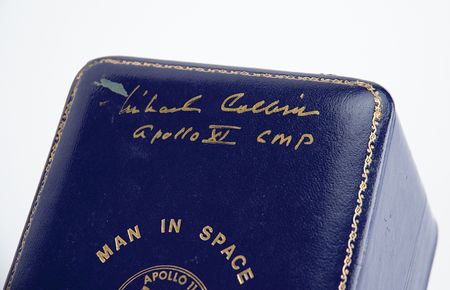 Michael Collins
Apollo XI CMP
MAN IN SPACE
APOLLO 11